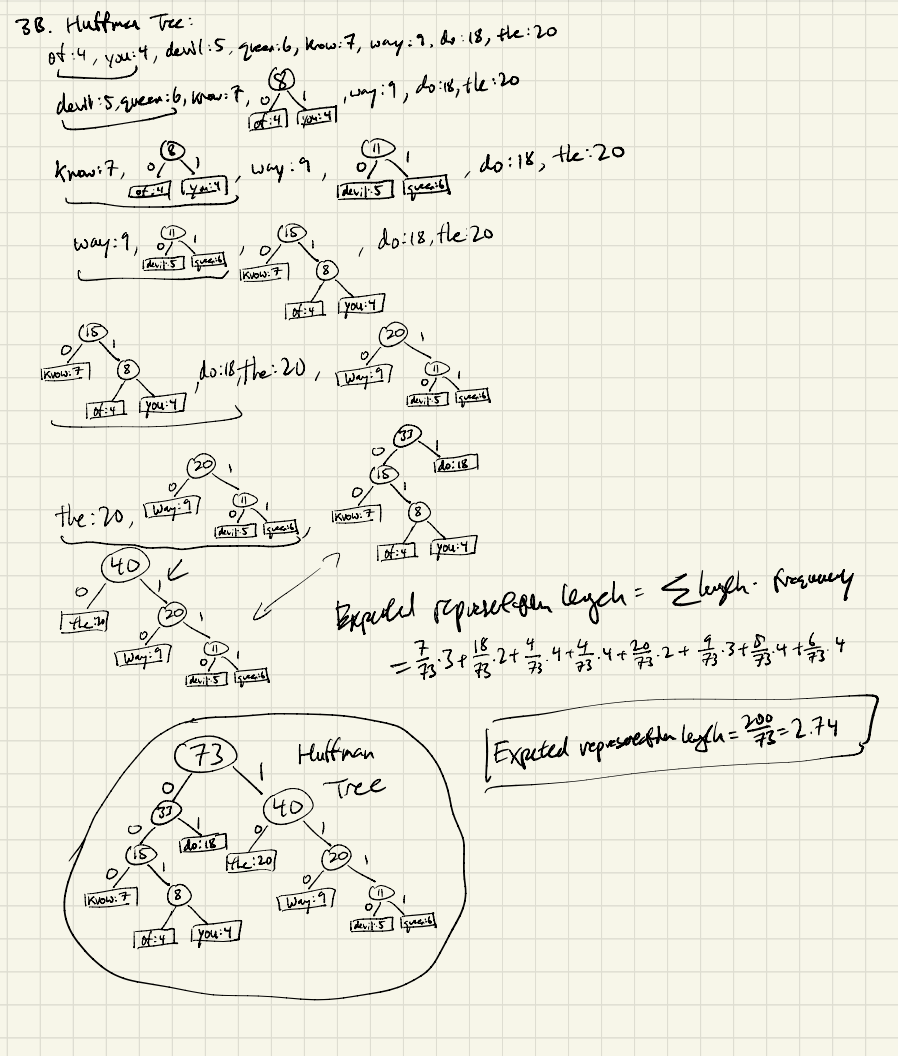 3B. Huffman Tree:
of:4, you:4, devil:5, queen:6, know:7, way:9, do:18, the:20
devil:5, queen:6, know:7, 8 0 1 of:4 you:4, way:9, do:18, the:20
know:7, 8 0 1 of:4 you:4, way:9, 11 0 1 devil:5 queen:6, do:18, the:20
way:9, 11 0 1 devil:5 queen:6, 15 0 1 know:7 8 of:4 you:4, do:18, the:20
15 0 1 know:7 8 of:4 you:4, do:18, the:20, 20 0 1 way:9 11 0 1 devil:5 queen:6
the:20, 20 0 1 way:9 11 0 1 devil:5 queen:6, 33 0 1 15 do:18 0 1 know:7 8 of:4 you:4
40 0 1 the:20 20 0 1 way:9 11 0 1 devil:5 queen:6
Expected representation length = Σ length · frequency
= 7/73·3 + 18/73·2 + 4/73·4 + 4/73·4 + 20/73·2 + 9/73·3 + 5/73·4 + 6/73·4
Expected representation length = 200/73 = 2.74
Huffman
Tree
73
0 1
33 40
0 1 0 1
15 do:18 the:20 20
0 1 0 1
know:7 8 way:9 11
0 1
of:4 you:4 devil:5 queen:6